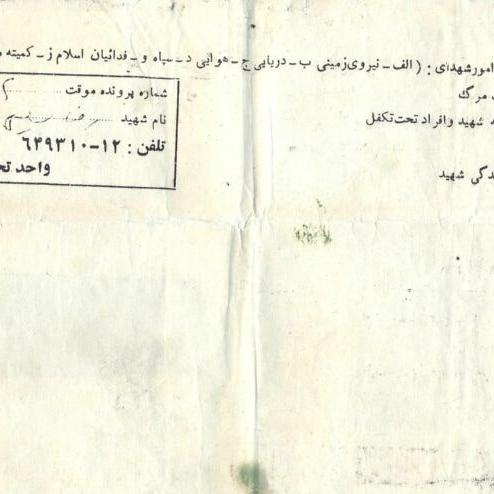 امور شهدای : ( الف ـ نیروی زمینی ب ـ دریایی ج ـ هوایی د ـ سپاه و ـ فدائیان اسلام ز ـ کمیته
مرگ
شهید و افراد تحت تکفل
شهید
شماره پرونده موقت
نام شهید
تلفن : ۱۲-۶۴۹۳۱۰
واحد